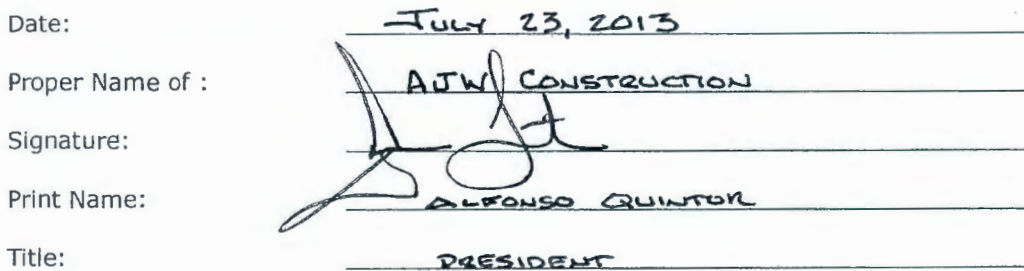 Date: JULY 23, 2013
Proper Name of : AJW CONSTRUCTION
Signature:
Print Name: ALFONSO QUINTOR
Title: PRESIDENT